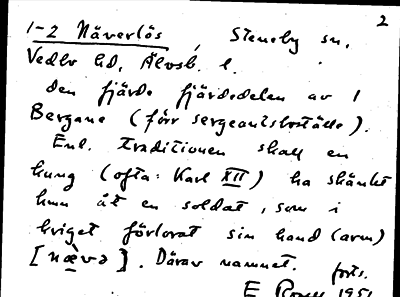 2
1-2 Näverlös, Steneby sn,
Vedbo hd, Älvsb. l.
den fjärde fjärdedelen av 1
Bergane (förr sergeantsboställe).
Enl. traditionen skall en
kung (ofta: Karl XII) ha skänkt
hmn åt en soldat, som i
kriget förlorat sin hand (arm)
[nævə]. Därav namnet. forts.
E 1951